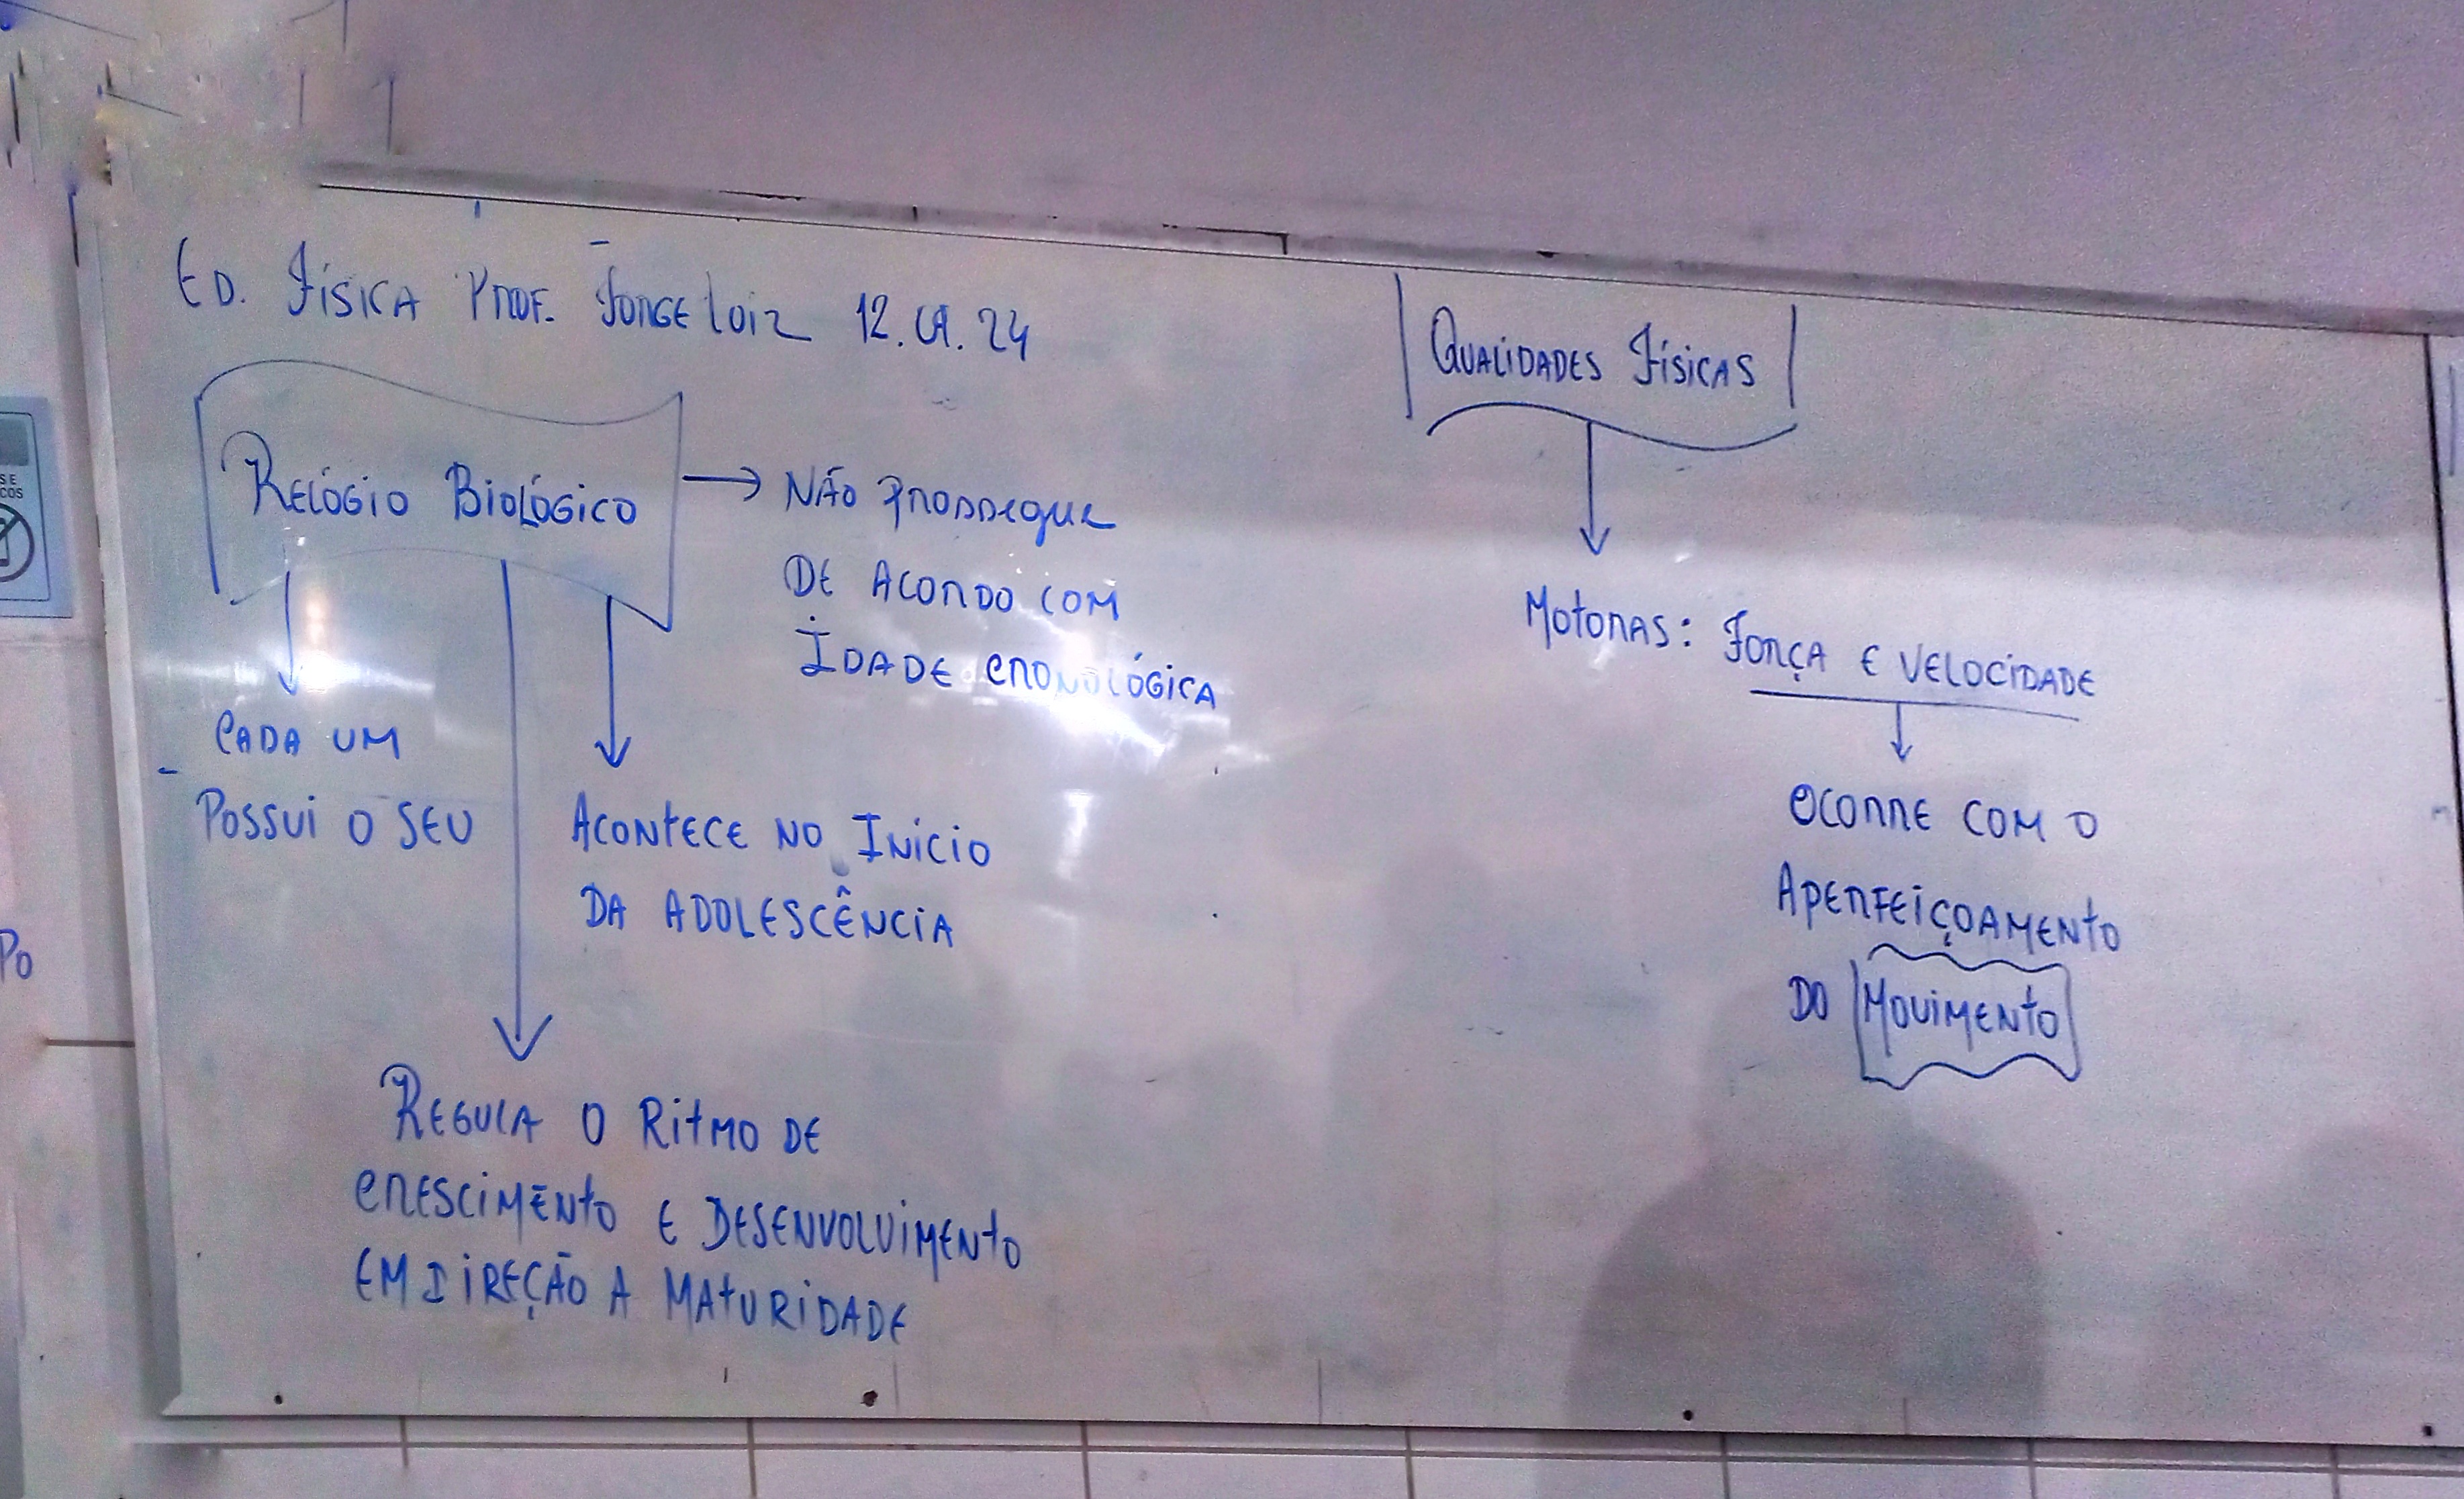 ED. FÍSICA PROF. JORGE LUIZ 12.09.24
RELÓGIO BIOLÓGICO
NÃO PROSSEGUE
DE ACORDO COM
IDADE CRONOLÓGICA
CADA UM
POSSUI O SEU
ACONTECE NO INÍCIO
DA ADOLESCÊNCIA
REGULA O RITMO DE
CRESCIMENTO E DESENVOLVIMENTO
EM DIREÇÃO A MATURIDADE
QUALIDADES FÍSICAS
MOTORAS: FORÇA E VELOCIDADE
OCORRE COM O
APERFEIÇOAMENTO
DO MOVIMENTO
PO
SE
COS